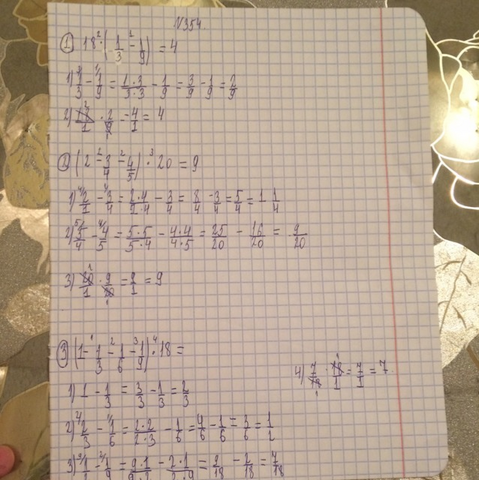 N354
① 18 · (1/3 - 1/9) = 4
1) 1/3 - 1/9 = 1·3/3·3 - 1/9 = 3/9 - 1/9 = 2/9
2) 18/1 · 2/9 = 4/1 = 4
② (2 - 3/4 - 4/5) · 20 = 9
1) 2/1 - 3/4 = 2·4/1·4 - 3/4 = 8/4 - 3/4 = 5/4 = 1 1/4
2) 5/4 - 4/5 = 5·5/5·4 - 4·4/4·5 = 25/20 - 16/20 = 9/20
3) 20/1 · 9/20 = 9/1 = 9
③ (1 - 1/3 - 1/6 - 1/9) · 18 =
1) 1 - 1/3 = 3/3 - 1/3 = 2/3
2) 2/3 - 1/6 = 2·2/2·3 - 1/6 = 4/6 - 1/6 = 3/6 = 1/2
3) 1/2 - 1/9 = 9·1/9·2 - 2·1/2·9 = 9/18 - 2/18 = 7/18
4) 7/18 · 18/1 = 7/1 = 7